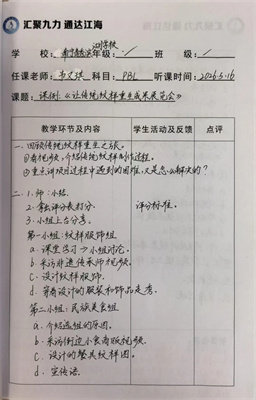 汇聚九力 通达江海
汇聚九力 通达江海
学 校: 年级: / 班 级: /
任课老师: 科目: PBL 听课时间: 2026.5.16
课题: 课例:《让传统纹样重生成果展览会》
教学环节及内容 学生活动及反馈 点评
一. 回顾传统纹样重生之旅。
①看视频,介绍传统纹样制作过程。
②重点讲项目过程中遇到的困难,又是怎么解决的?
二. 1. 师:小结.
2. 拿出评分表打分. 评分标准。
3. 小组上台分享。
第一小组:纹样服饰组
a. 课堂学习→小组讨论。
b. 采访非遗传承师视频.
c. 设计纹样服饰.
d. 穿着设计的服装和饰品走秀.
第二小组:民族美食组
a. 介绍选组的原因。
b. 采访街边小食商贩视频.
c. 设计的餐具纹样图。
d. 宣传语.